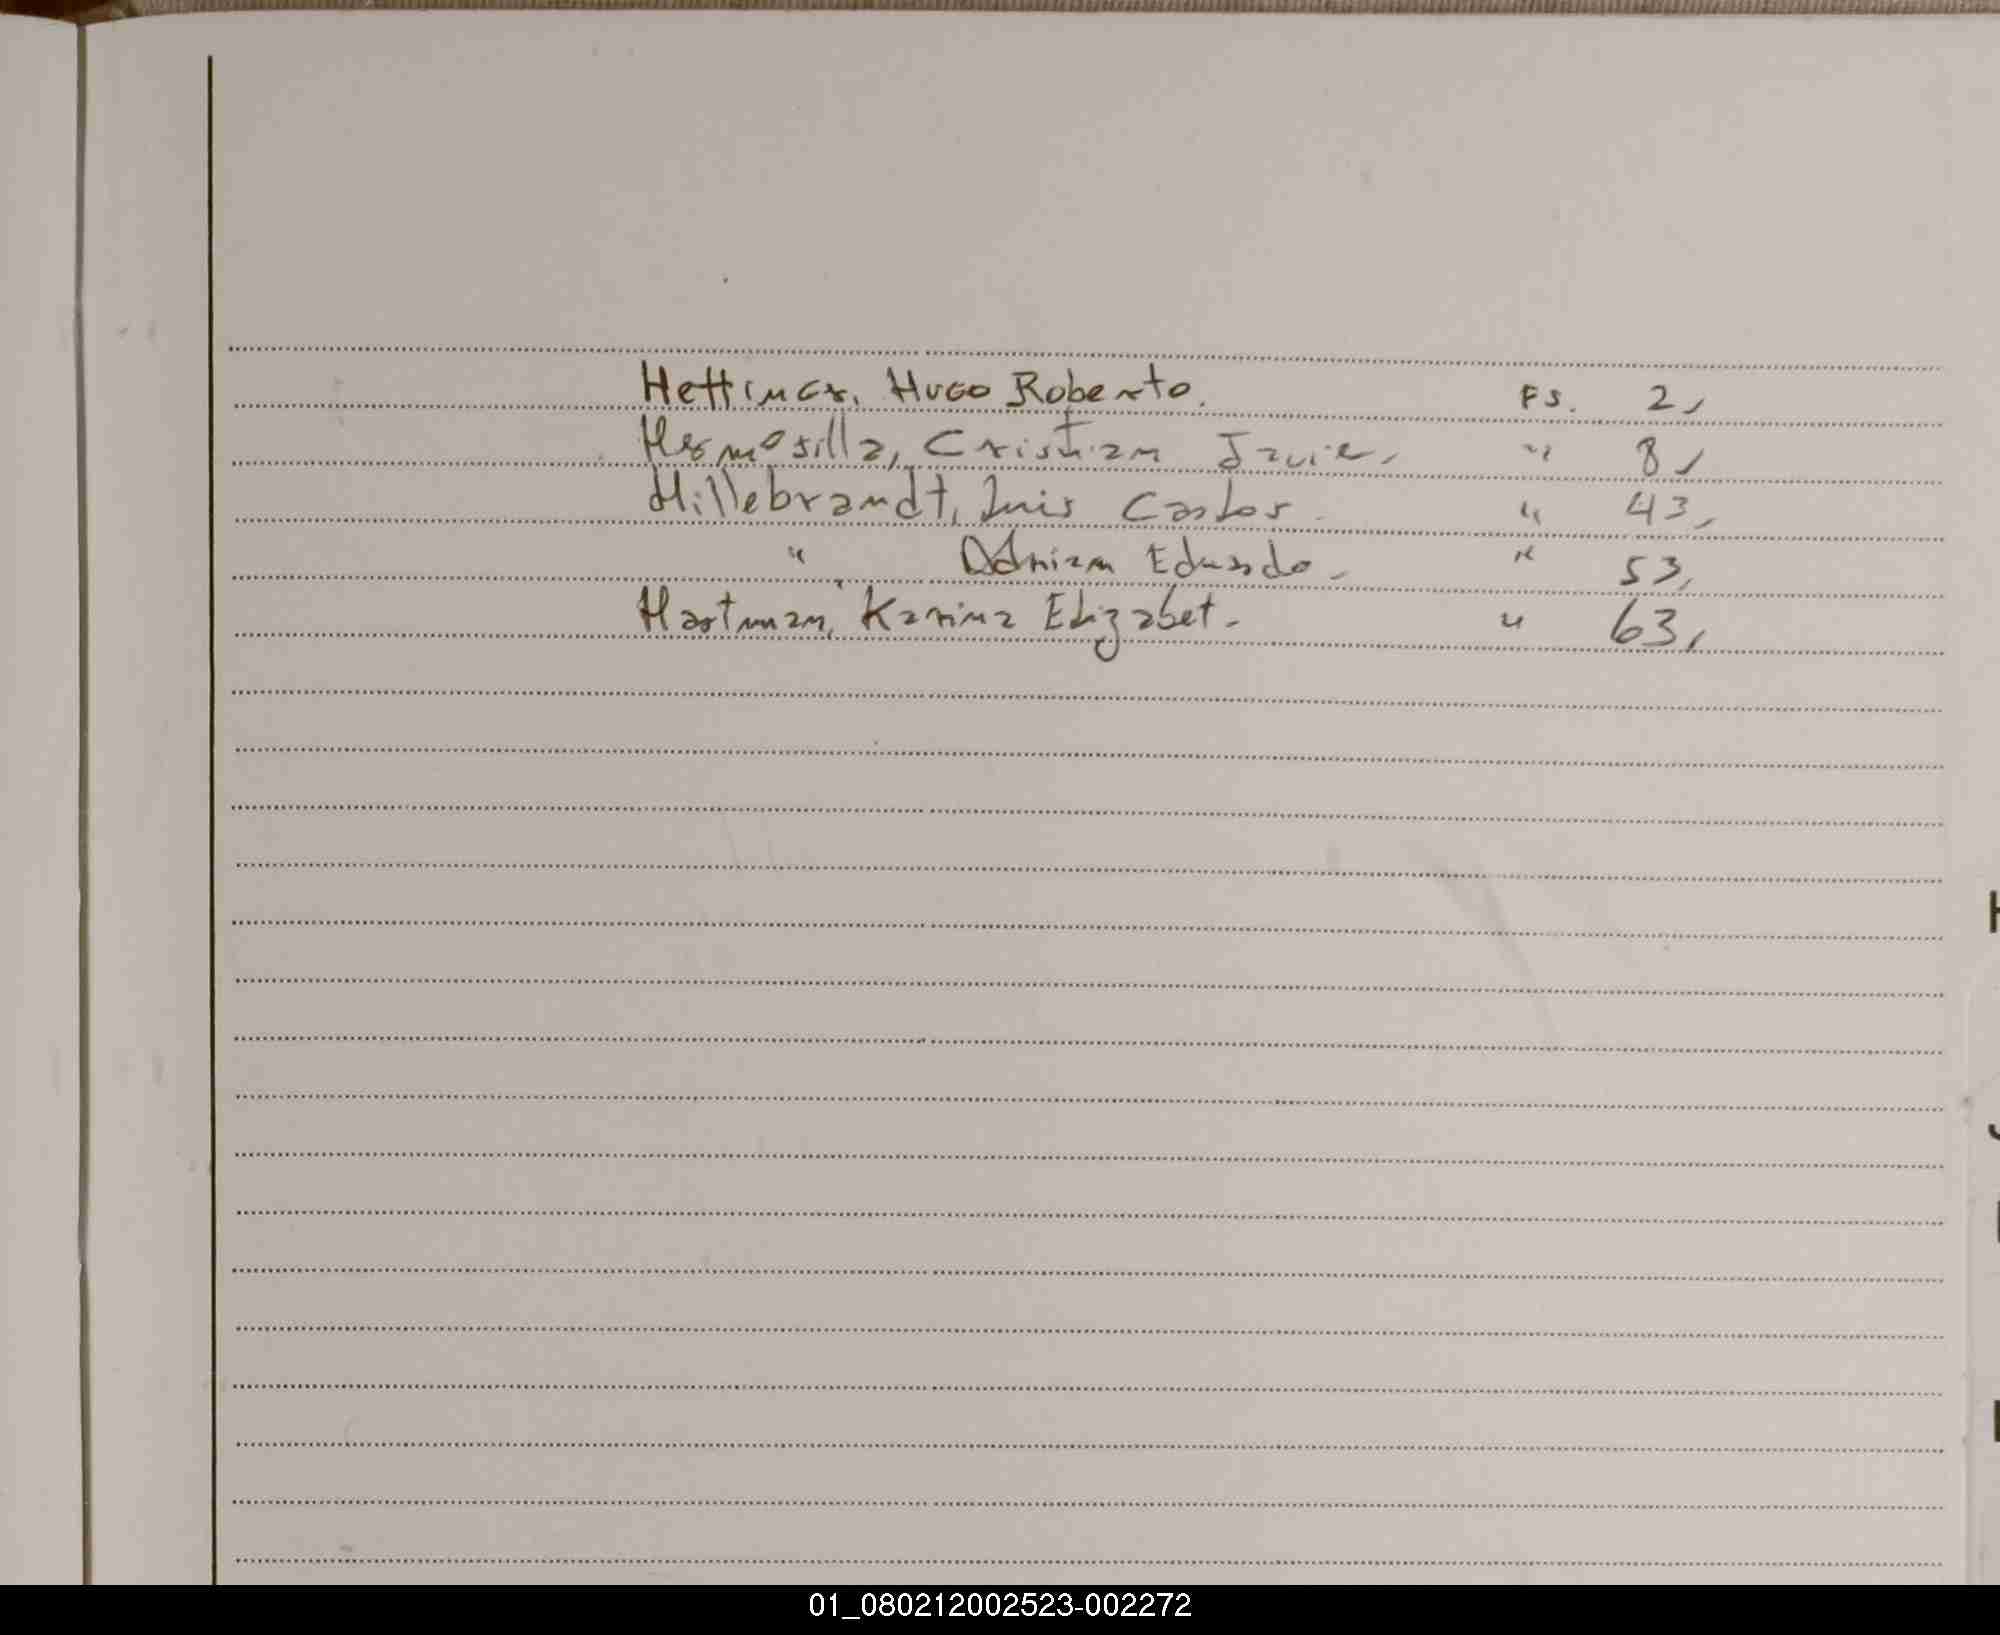 Hettinger, Hugo Roberto. Fs. 2,
Hermosilla, Cristian Javier, " 8,
Hillebrandt, Luis Carlos. " 43,
" Adrian Eduardo. " 53,
Hartman, Karina Elizabet. " 63,
01_080212002523-002272